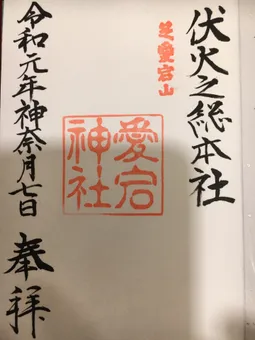 伏火之総本社
芝愛宕山
愛宕
神社
奉拝
令和元年神奈月七日